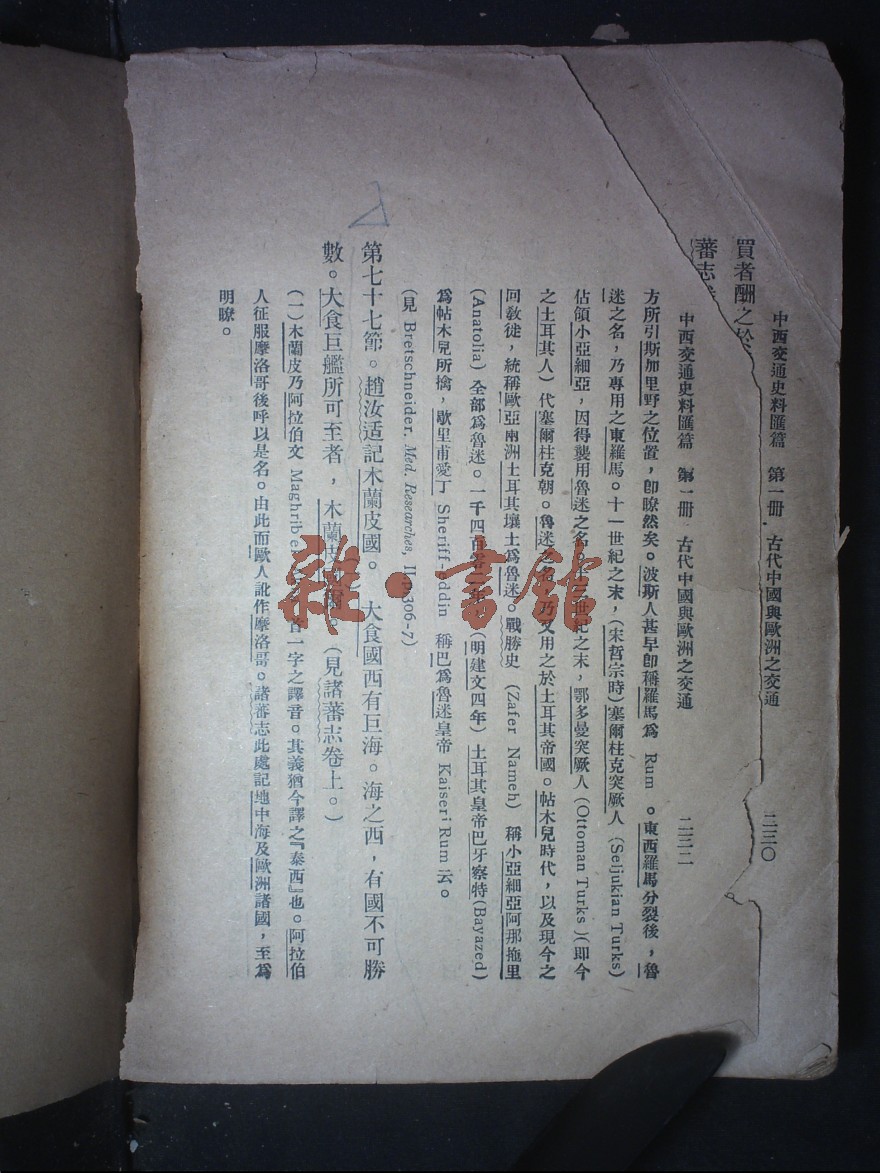 中西交通史料匯篇 第一冊 古代中國與歐洲之交通 二二〇
買者酬之於
蕃志
中西交通史料匯篇 第一冊 古代中國與歐洲之交通
方所引斯加里野之位置，卽瞭然矣。波斯人甚早卽稱羅馬爲 Rum 。東西羅馬分裂後，魯
迷之名，乃專用之東羅馬。十一世紀之末，(宋哲宗時)塞爾柱克突厥人 (Seljukian Turks)
佔領小亞細亞，因得襲用魯迷之名。世紀之末，鄂多曼突厥人 (Ottoman Turks)(卽今
之土耳其人) 代塞爾柱克朝。魯迷之名，乃又用之於土耳其帝國。帖木兒時代，以及現今之
回敎徒，統稱歐亞兩洲土耳其壤土爲魯迷。戰勝史 (Zafer Nameh) 稱小亞細亞阿那拖里
(Anatolia) 全部爲魯迷。一千四百(明建文四年) 土耳其皇帝巴牙察特(Bayazed)
爲帖木兒所擒，歇里甫愛丁 Sheriff-uddin 稱巴爲魯迷皇帝 Kaiseri Rum 云。
(見 Bretschneider, Med. Researches, II, 306-7)
第七十七節。趙汝适記木蘭皮國。 大食國西有巨海。海之西，有國不可勝
數。大食巨艦所可至者，木蘭皮國爾。(見諸蕃志卷上。)
(一)木蘭皮乃阿拉伯文 Maghrib 首一字之譯音。其義猶今譯之『泰西』也。阿拉伯
人征服摩洛哥後呼以是名。由此而歐人訛作摩洛哥。諸蕃志此處記地中海及歐洲諸國，至爲
明瞭。
雜·書館